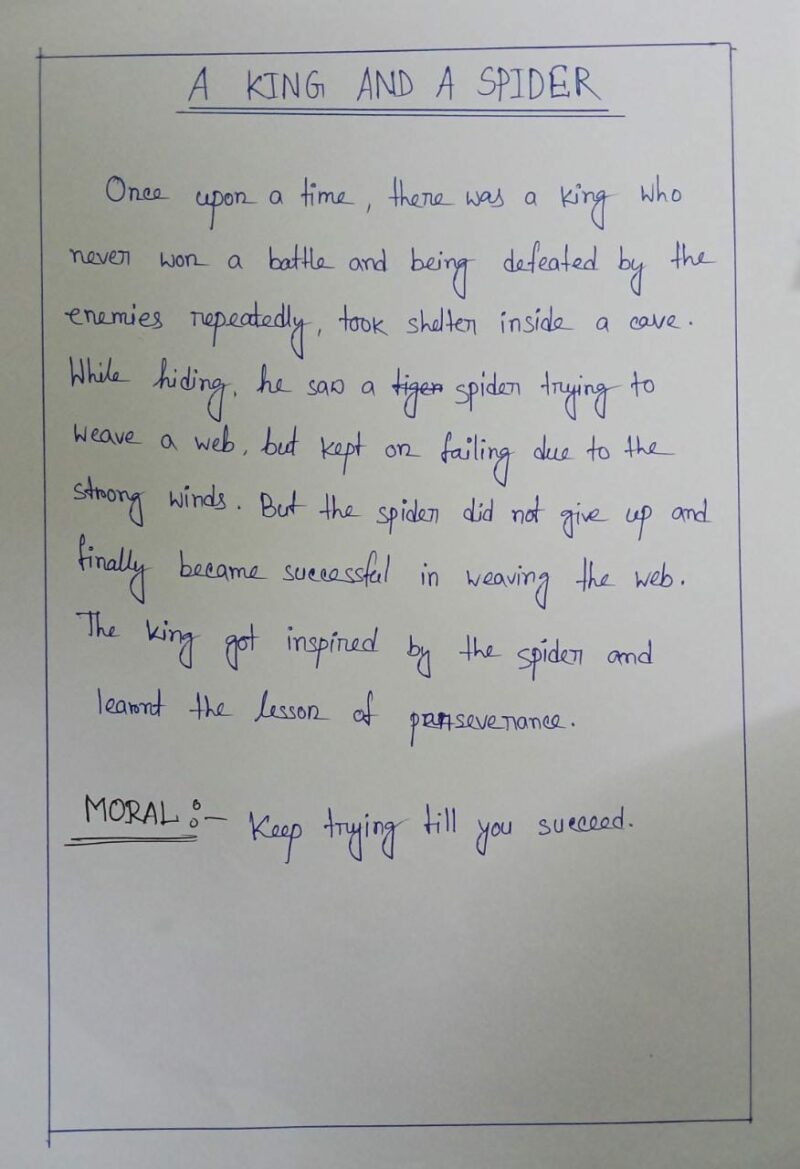 A KING AND A SPIDER
Once upon a time, there was a king who
never won a battle and being defeated by the
enemies repeatedly, took shelter inside a cave.
While hiding, he saw a tiger spider trying to
weave a web, but kept on failing due to the
strong winds. But the spider did not give up and
finally became successful in weaving the web.
The king got inspired by the spider and
learnt the lesson of perseverance.
MORAL :- Keep trying till you succeed.